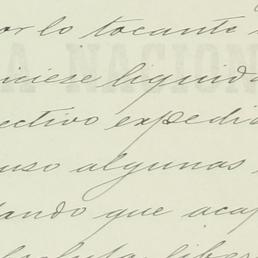 por lo tocante
A NACION
iciese liquida
ectivo expedi
uso algunas
tando que aca